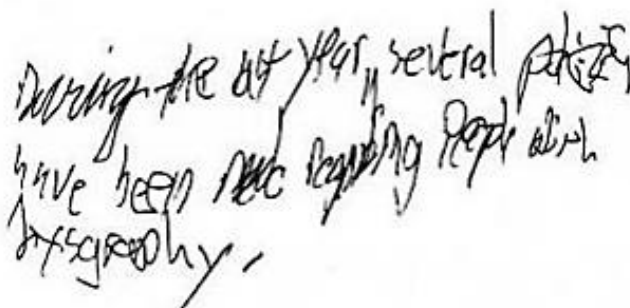 During the last year, several
have been made regarding People with
Dysgraphy.